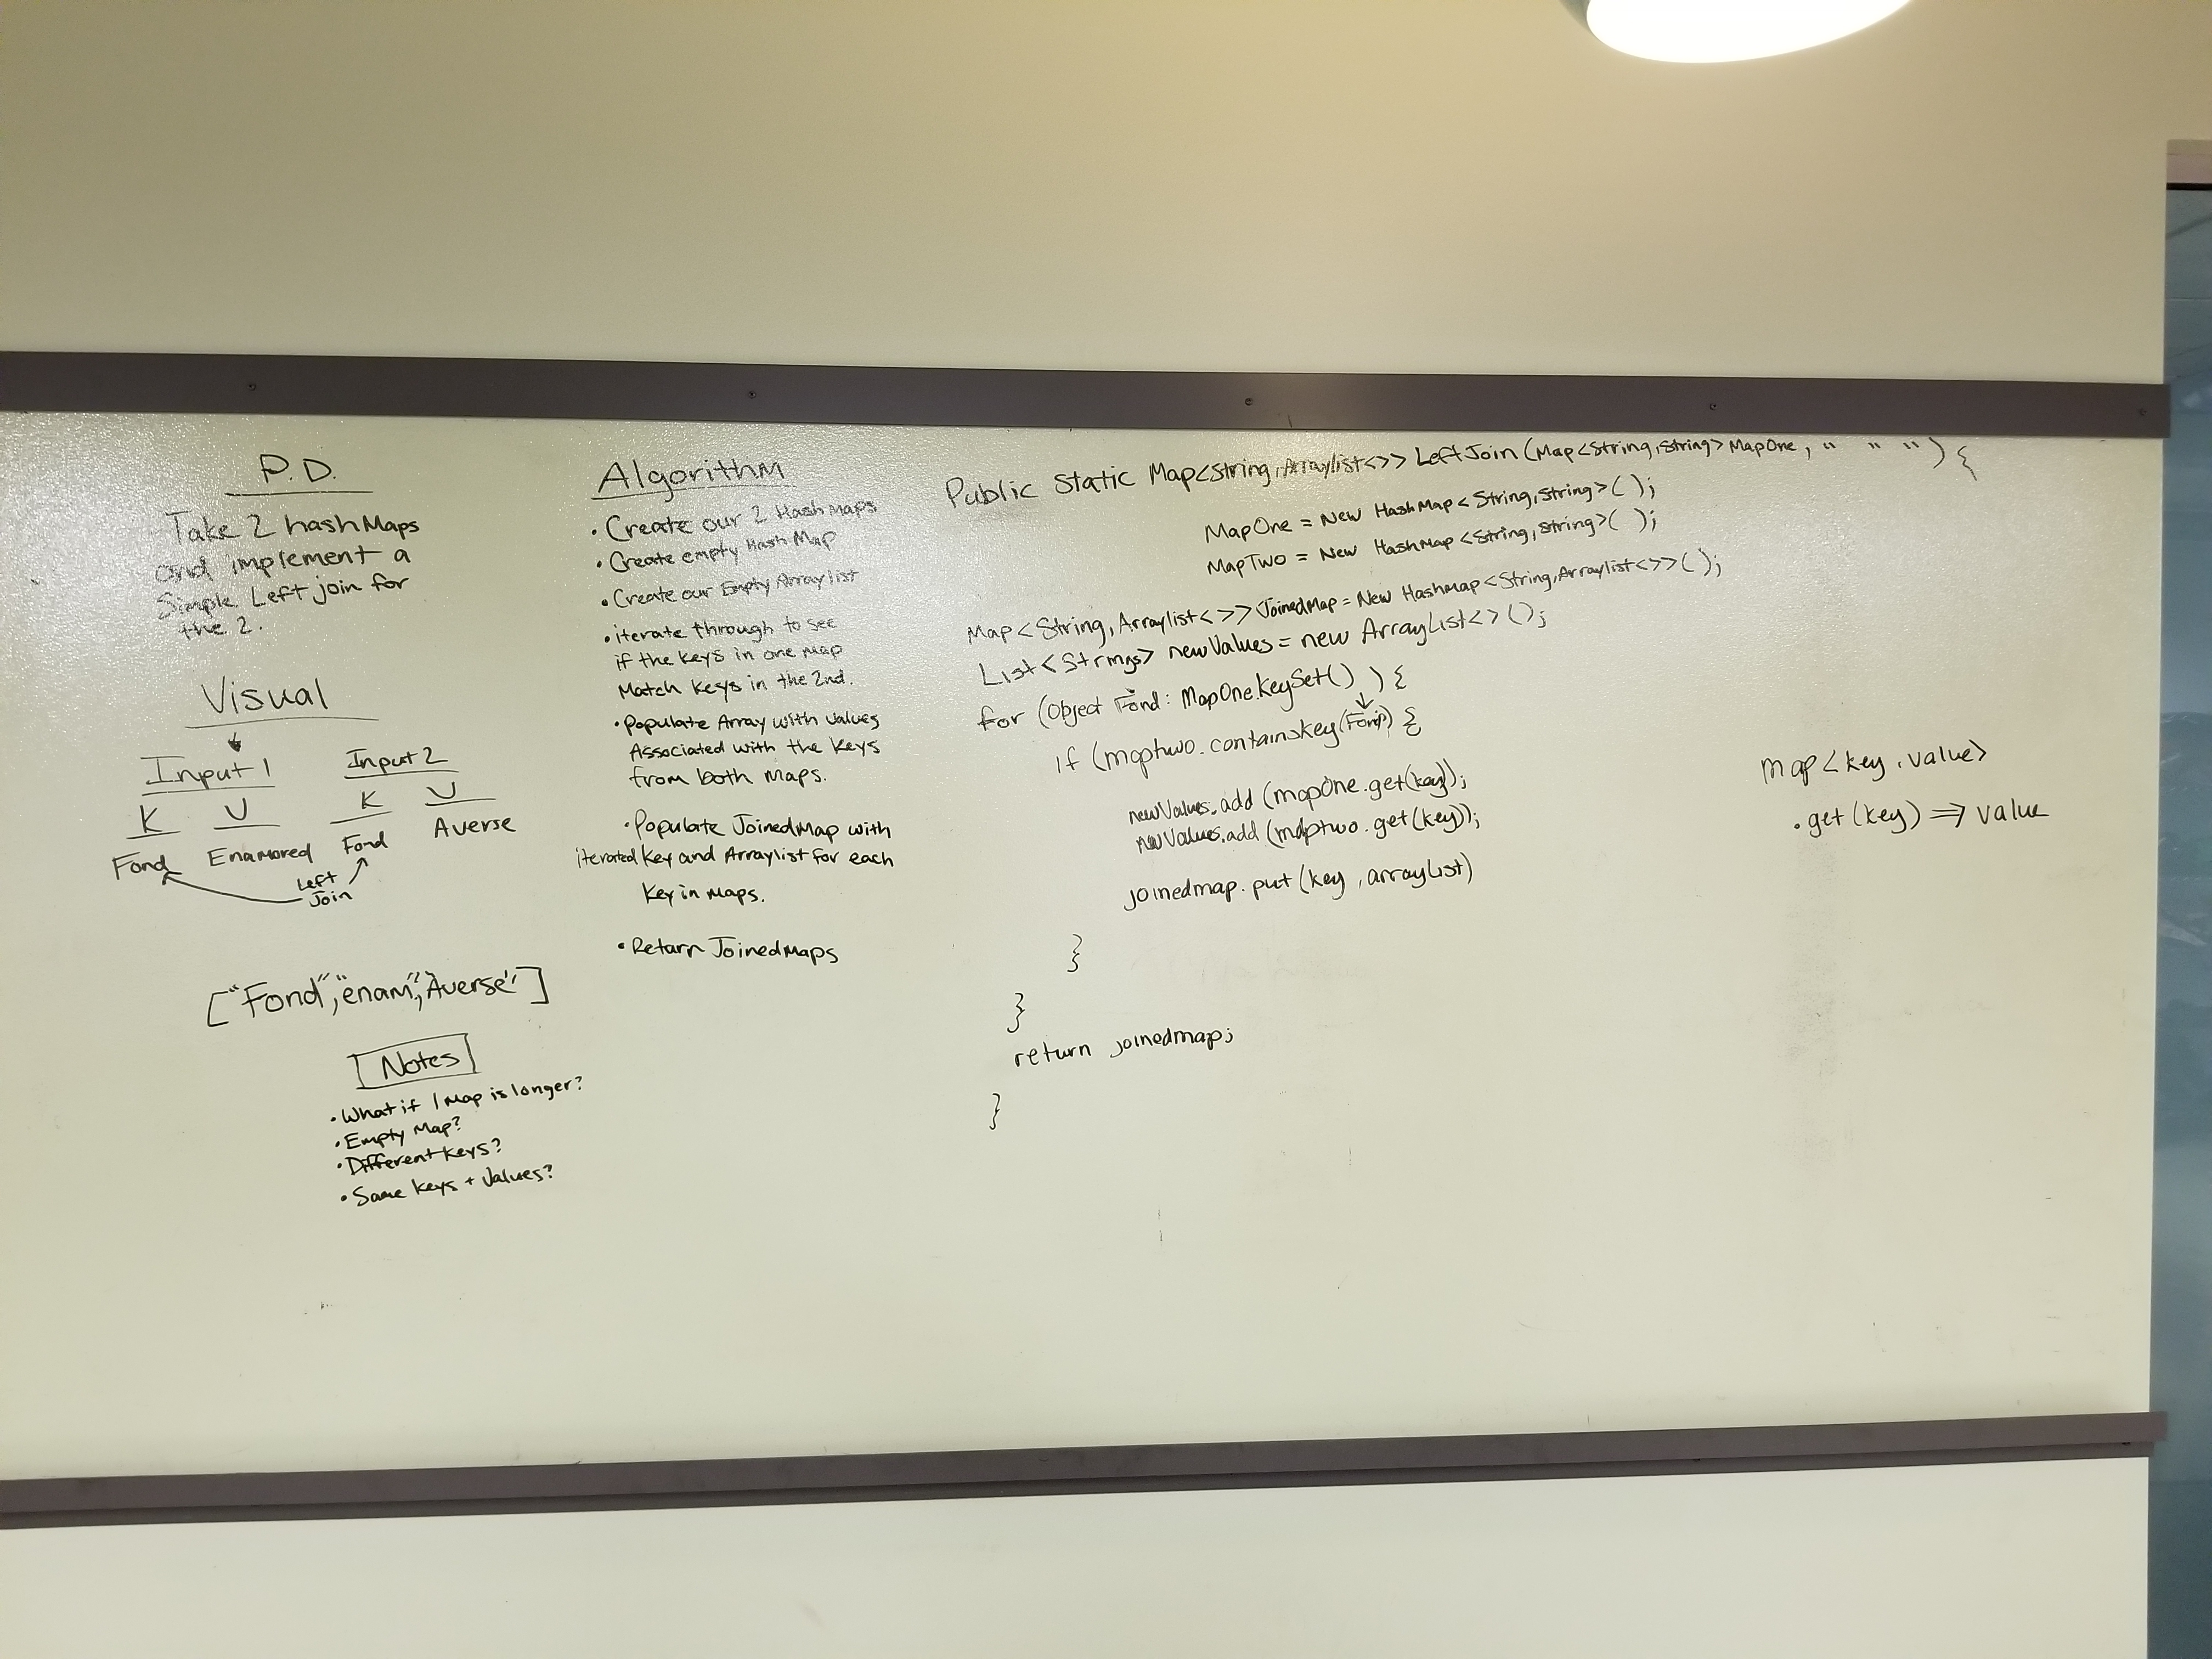 P.D.
Take 2 hashMaps
and implement a
Simple Left join for
the 2.
Visual
Input 1 Input 2
K V K V
Fond Enamored Fond Averse
Left
Join
["Fond","enam","Averse"]
Notes
• What if 1 Map is longer?
• Empty Map?
• Different keys?
• Same keys + Values?
Algorithm
• Create our 2 HashMaps
• Create empty HashMap
• Create our Empty Arraylist
• iterate through to see
if the keys in one map
Match keys in the 2nd.
• Populate Array with values
Associated with the keys
from both Maps.
• Populate JoinedMap with
iterated key and Arraylist for each
key in maps.
• Return JoinedMaps
Public Static Map<String, Arraylist<>> LeftJoin (Map<String, String> MapOne, " " ") {
MapOne = New HashMap<String, String>( );
MapTwo = New HashMap<String, String>( );
Map<String, Arraylist<>> JoinedMap = New Hashmap<String, Arraylist<>>( );
List<Strings> newValues = new ArrayList<>();
for (Object Fond: MapOne.KeySet() ) {
if (maptwo.containsKey( ) {
newValues.add (mapOne.get(key));
newValues.add (maptwo.get(key));
joinedmap.put (key, arrayList)
}
}
return joinedmap;
}
map<key, value>
.get(key) ⇒ value